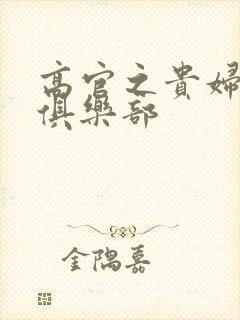 高官之貴婦
俱樂部
金隅嘉